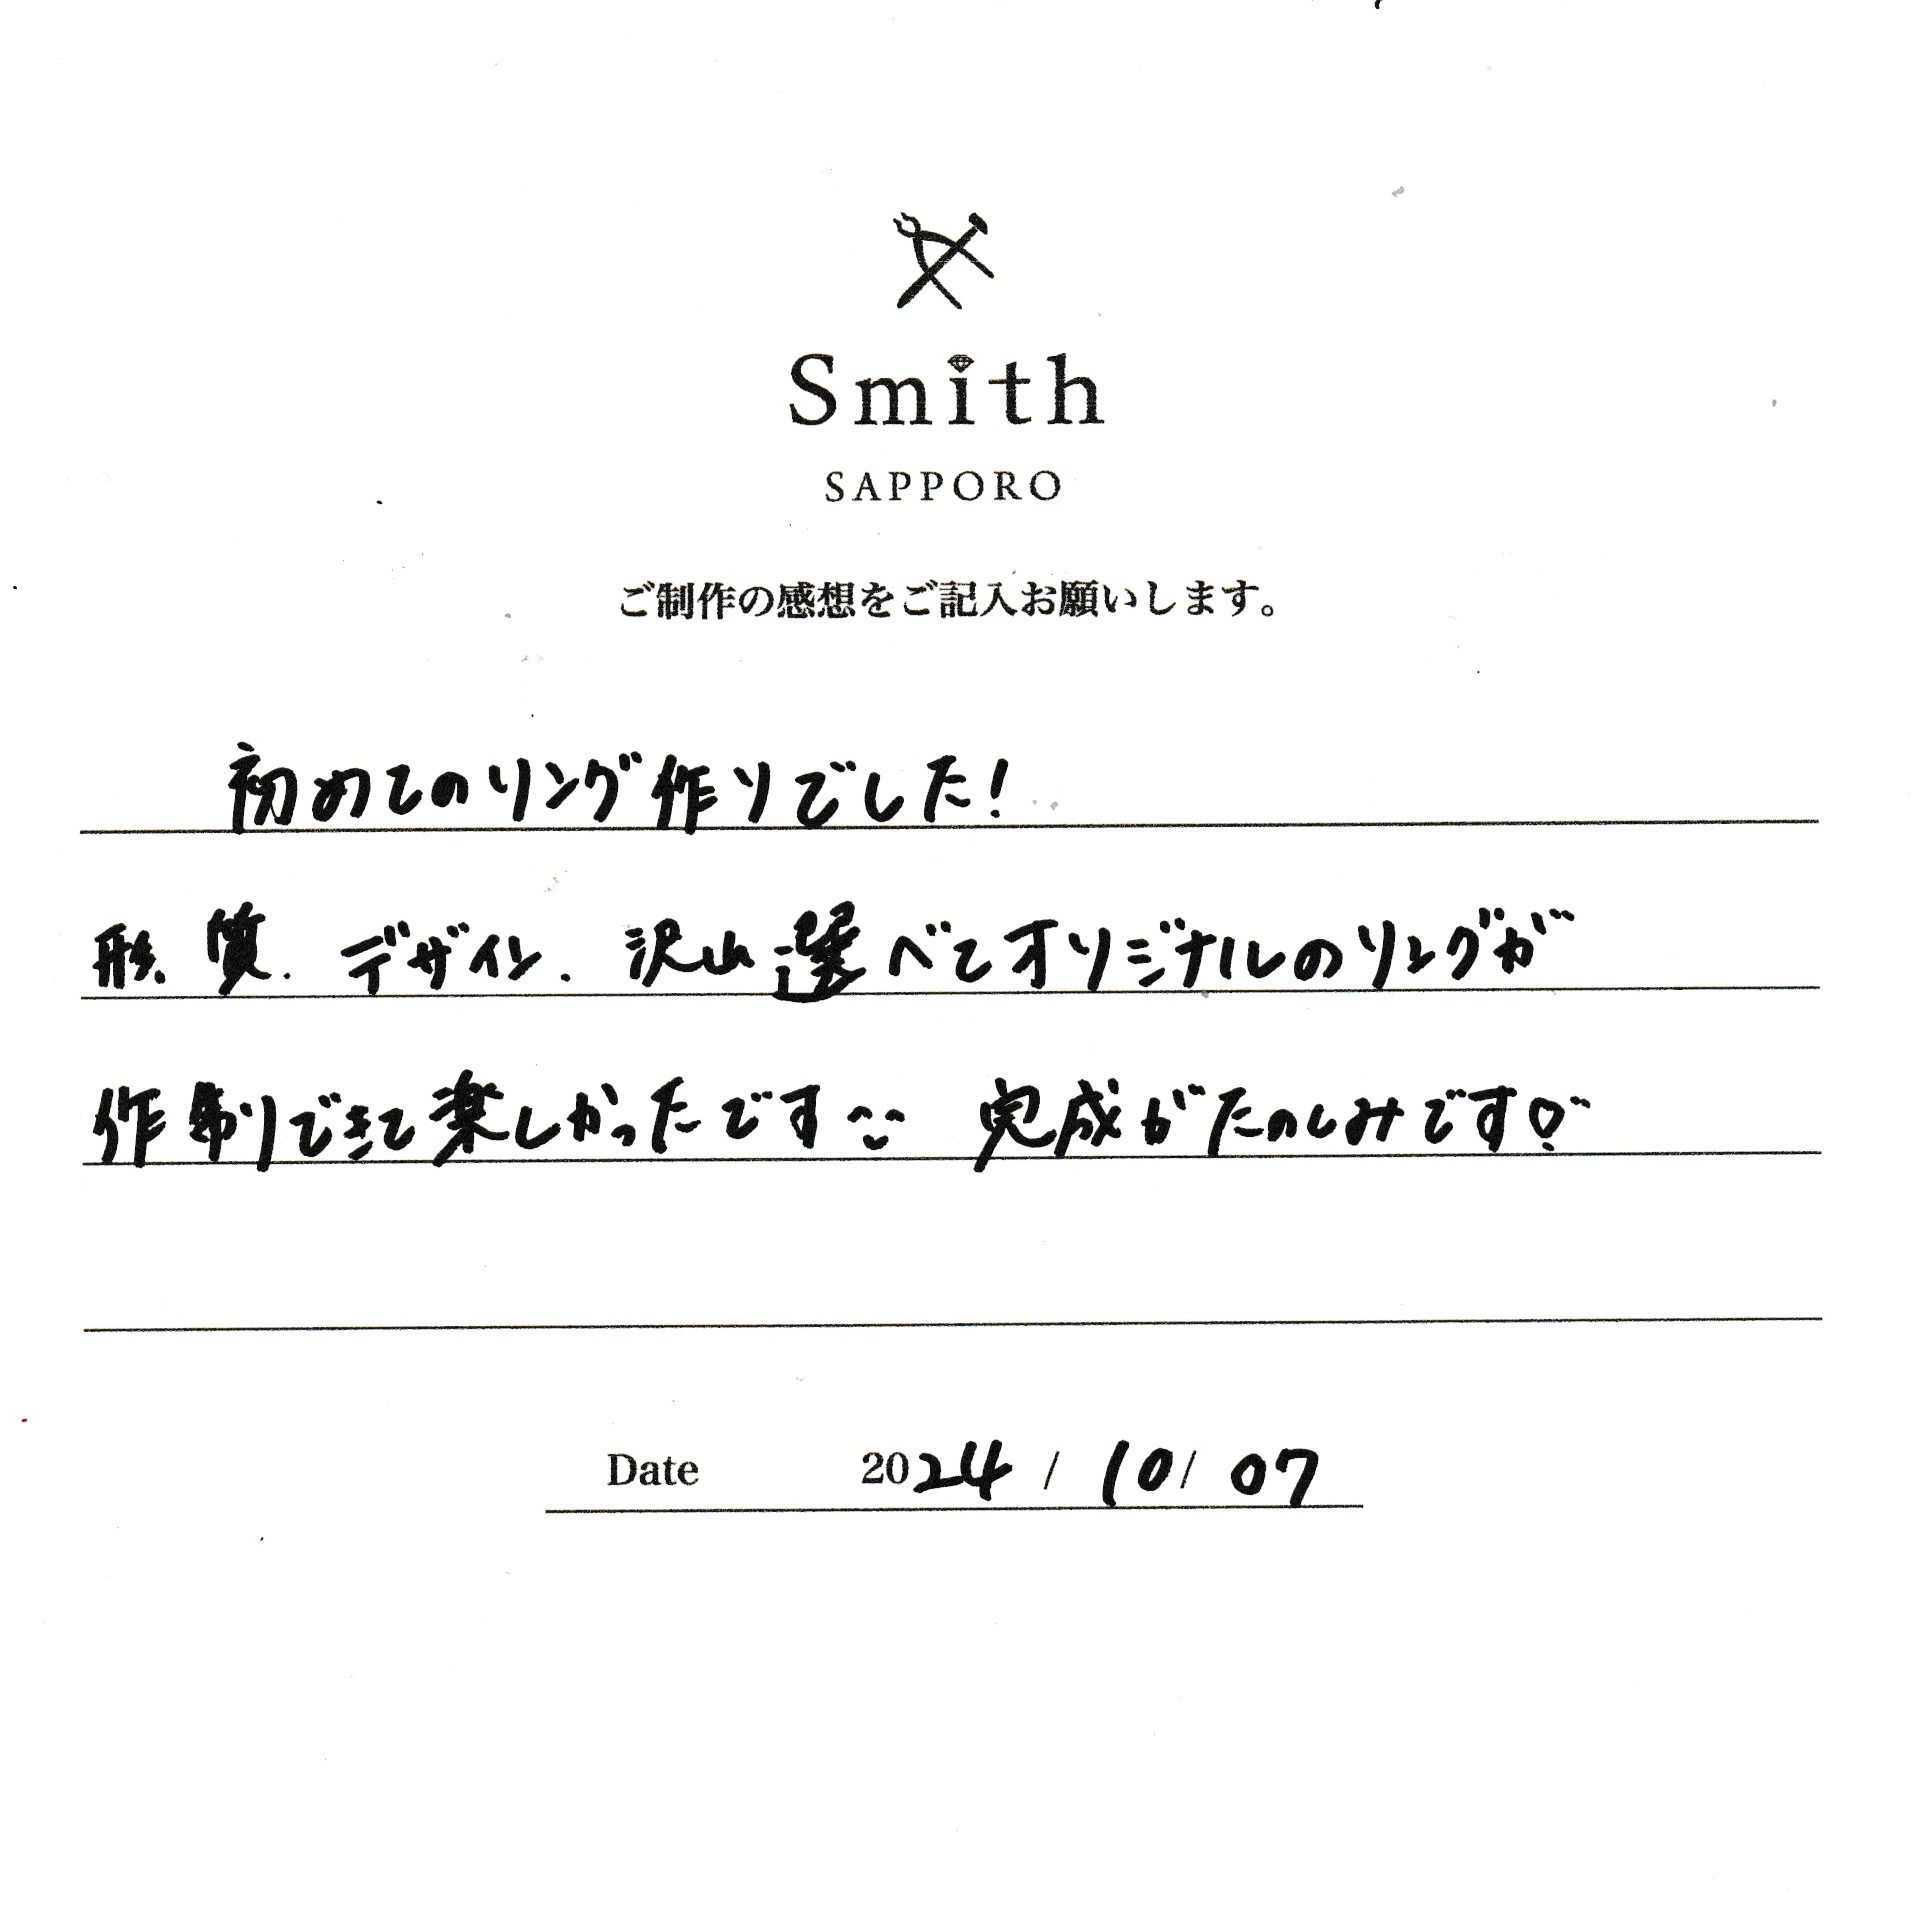 Smith
SAPPORO
ご制作の感想をご記入お願いします。
初めてのリング作りでした!
形、質、デザイン、沢山選べてオリジナルのリングが
作制できて楽しかったです 完成がたのしみです♡
Date 2024 / 10 / 07